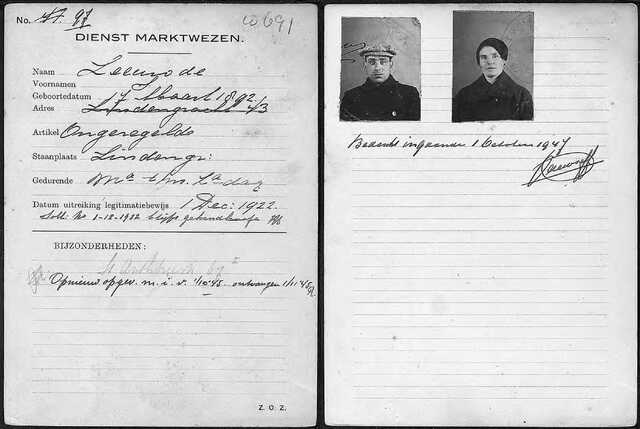 No. 47. 97 10691
DIENST MARKTWEZEN.
Naam Leeuwode
Voornamen
Geboortedatum 17 Maart 1892
Adres Lindengracht 43
Artikel Ongeregelde
Staanplaats Lindengr:
Gedurende Ma t/m Zadag
Datum uitreiking legitimatiebewijs 1 Dec: 1922.
1-12-1922
BIJZONDERHEDEN:
Opnieuw opgev. m. i. v. 1/10 '45 ontvangen 1/11 '45
Z. O. Z.
Bedankt ingaande 1 October 1947